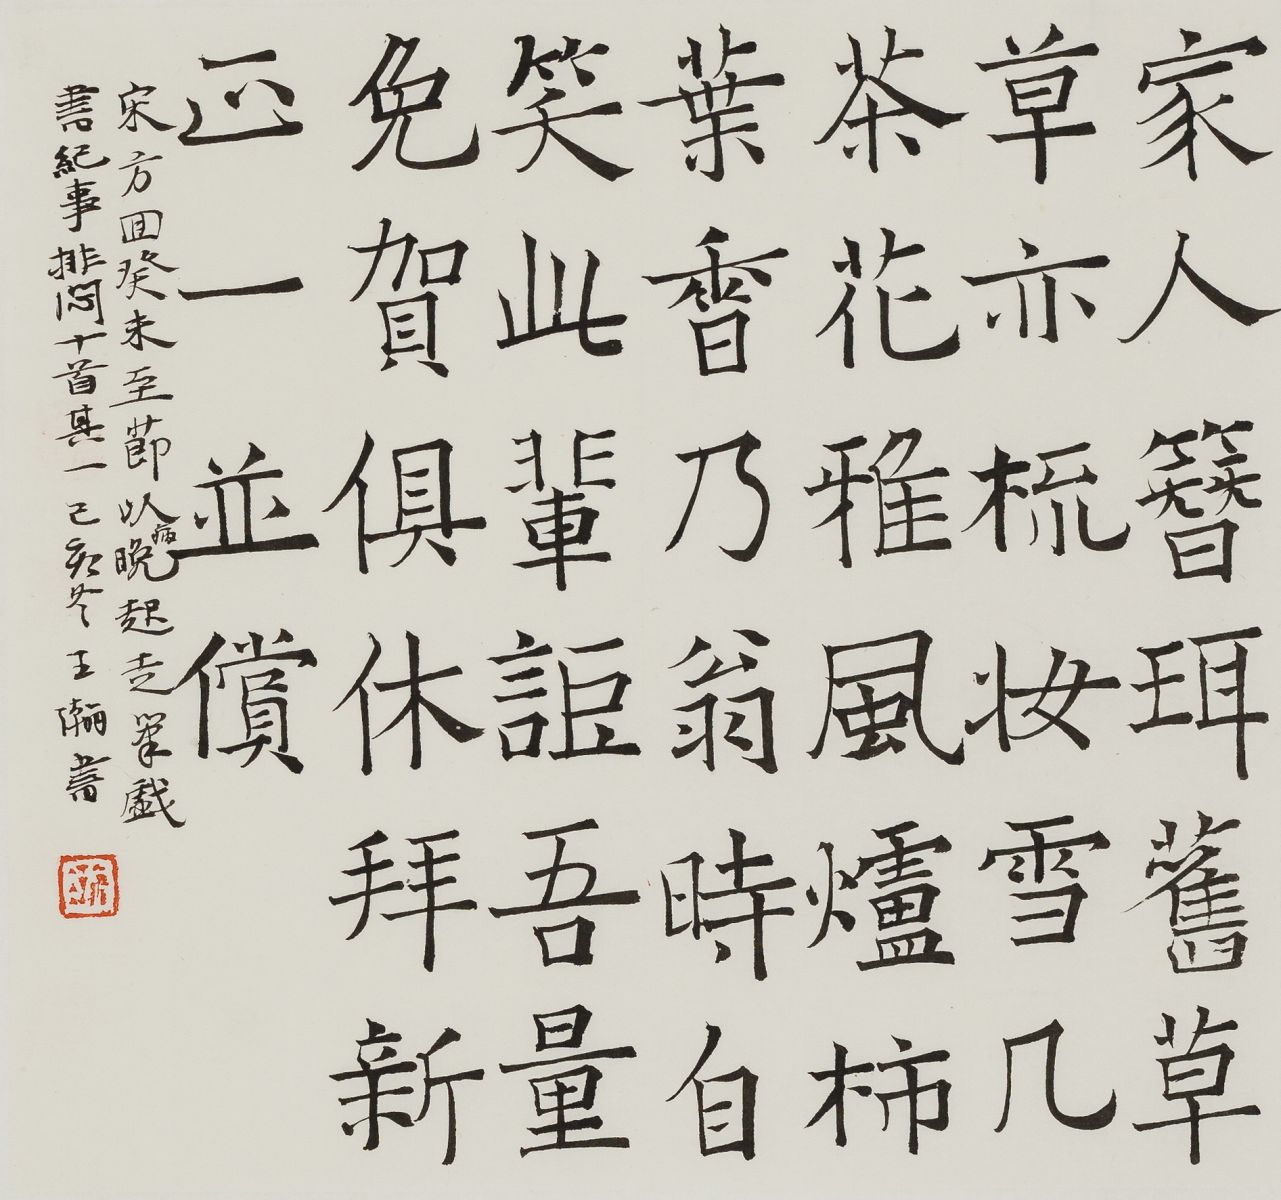 家人簪珥舊草
草亦梳妝雪几
茶花雅風爐柿
葉香乃翁時自
笑此輩詎吾量
免賀俱休拜新
正一並償
宋方回癸未至節以病晚起走筆戲
書紀事排悶十首其一己亥冬王瀚書